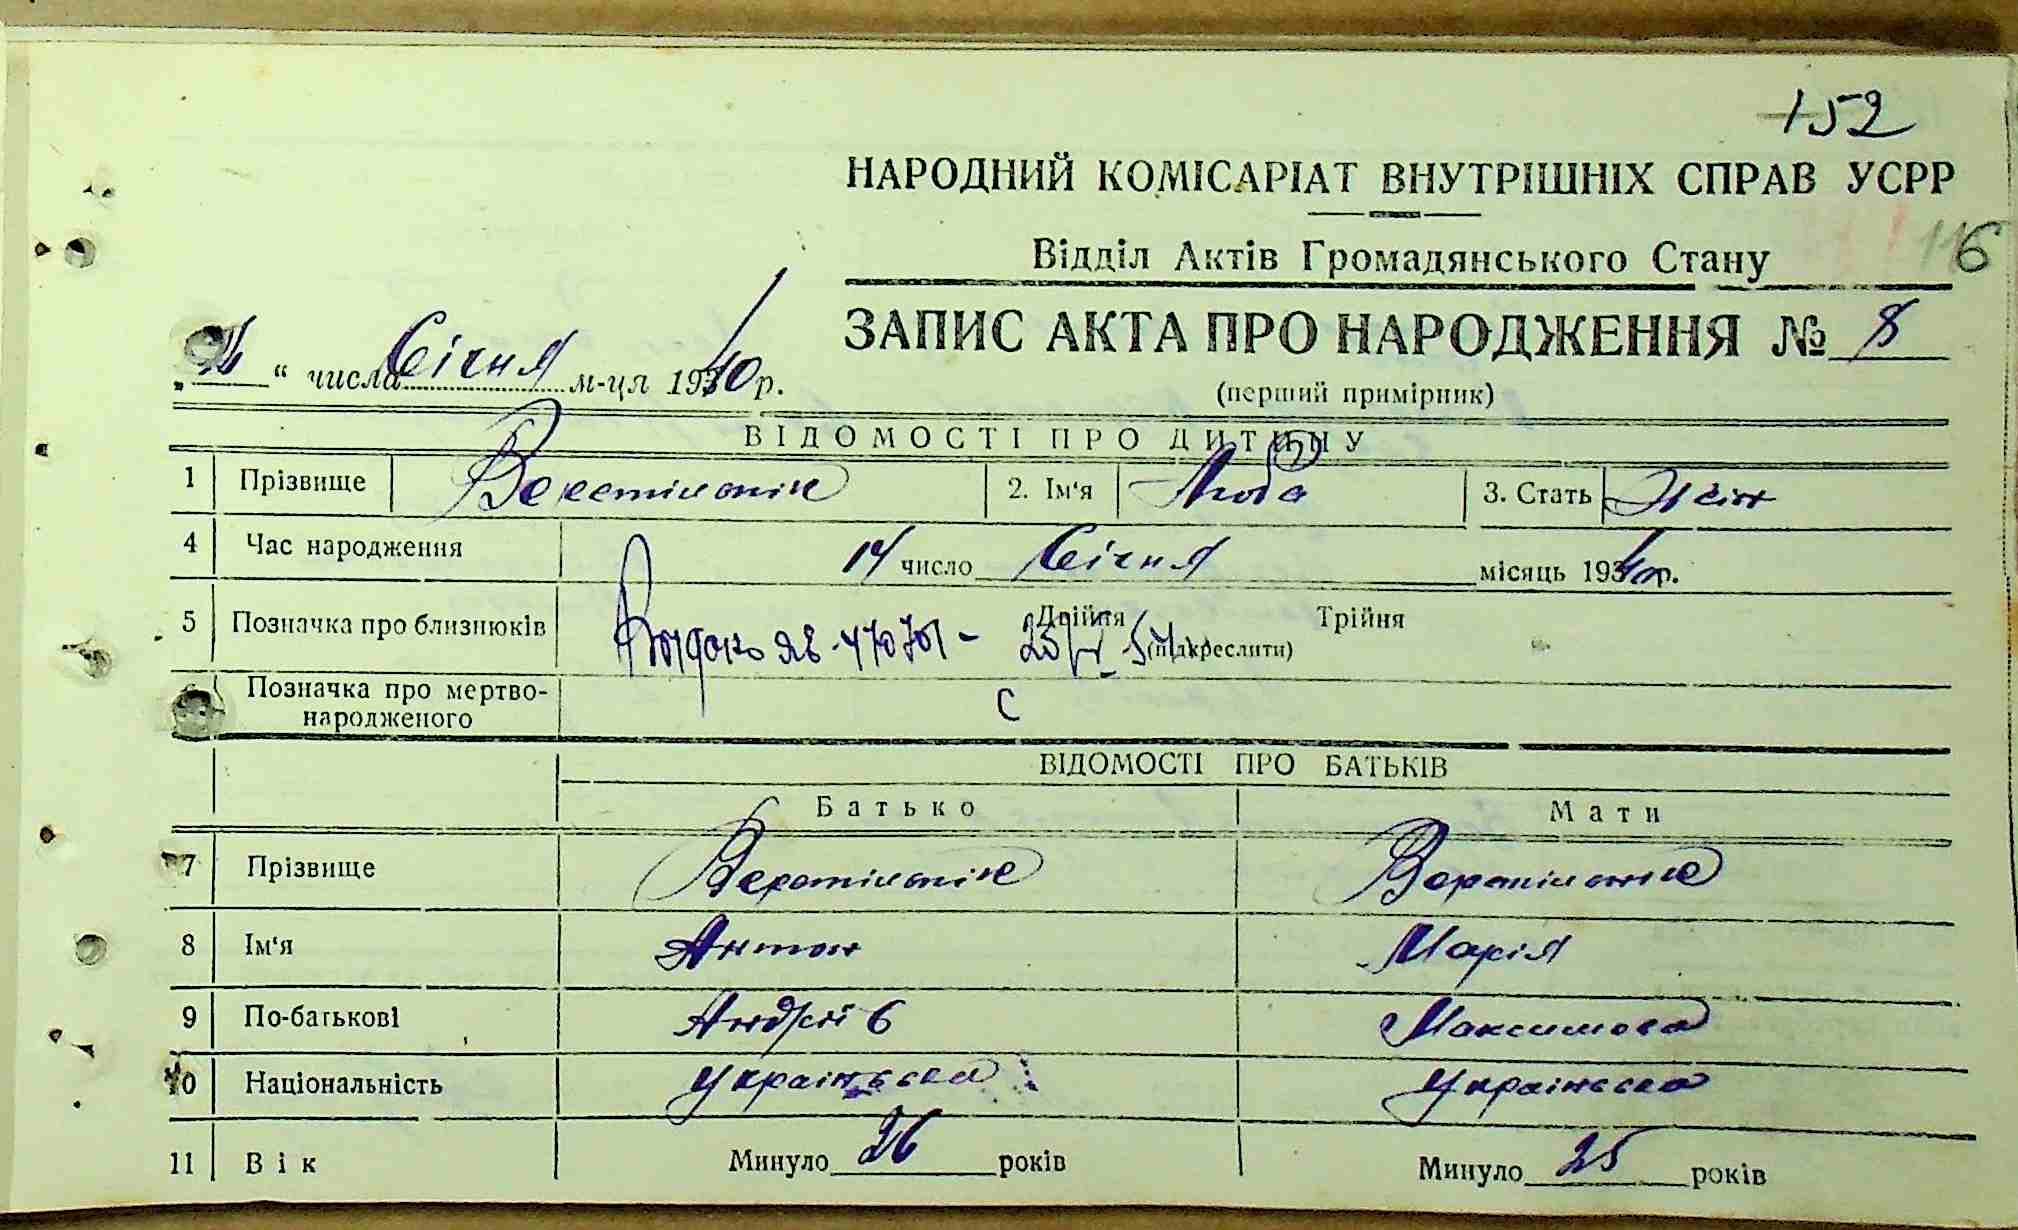 152
НАРОДНИЙ КОМІСАРІАТ ВНУТРІШНІХ СПРАВ УСРР
116
Відділ Актів Громадянського Стану
ЗАПИС АКТА ПРО НАРОДЖЕННЯ № 8
(перший примірник)
„ “ числа Січня м-ця 1940 р.
ВІДОМОСТІ ПРО ДИТИНУ
1 Прізвище 2. Ім‘я Люба 3. Стать Жін
4 Час народження 14 число Січня місяць 1940 р.
5 Позначка про близнюків Двійня Трійня
(підкреслити)
6 Позначка про мертво-
народженого
ВІДОМОСТІ ПРО БАТЬКІВ
Батько Мати
7 Прізвище
8 Ім‘я Антон Марія
9 По-батькові Андрїїв Максимова
10 Національність українська українська
11 Вік Минуло 26 років Минуло 25 років